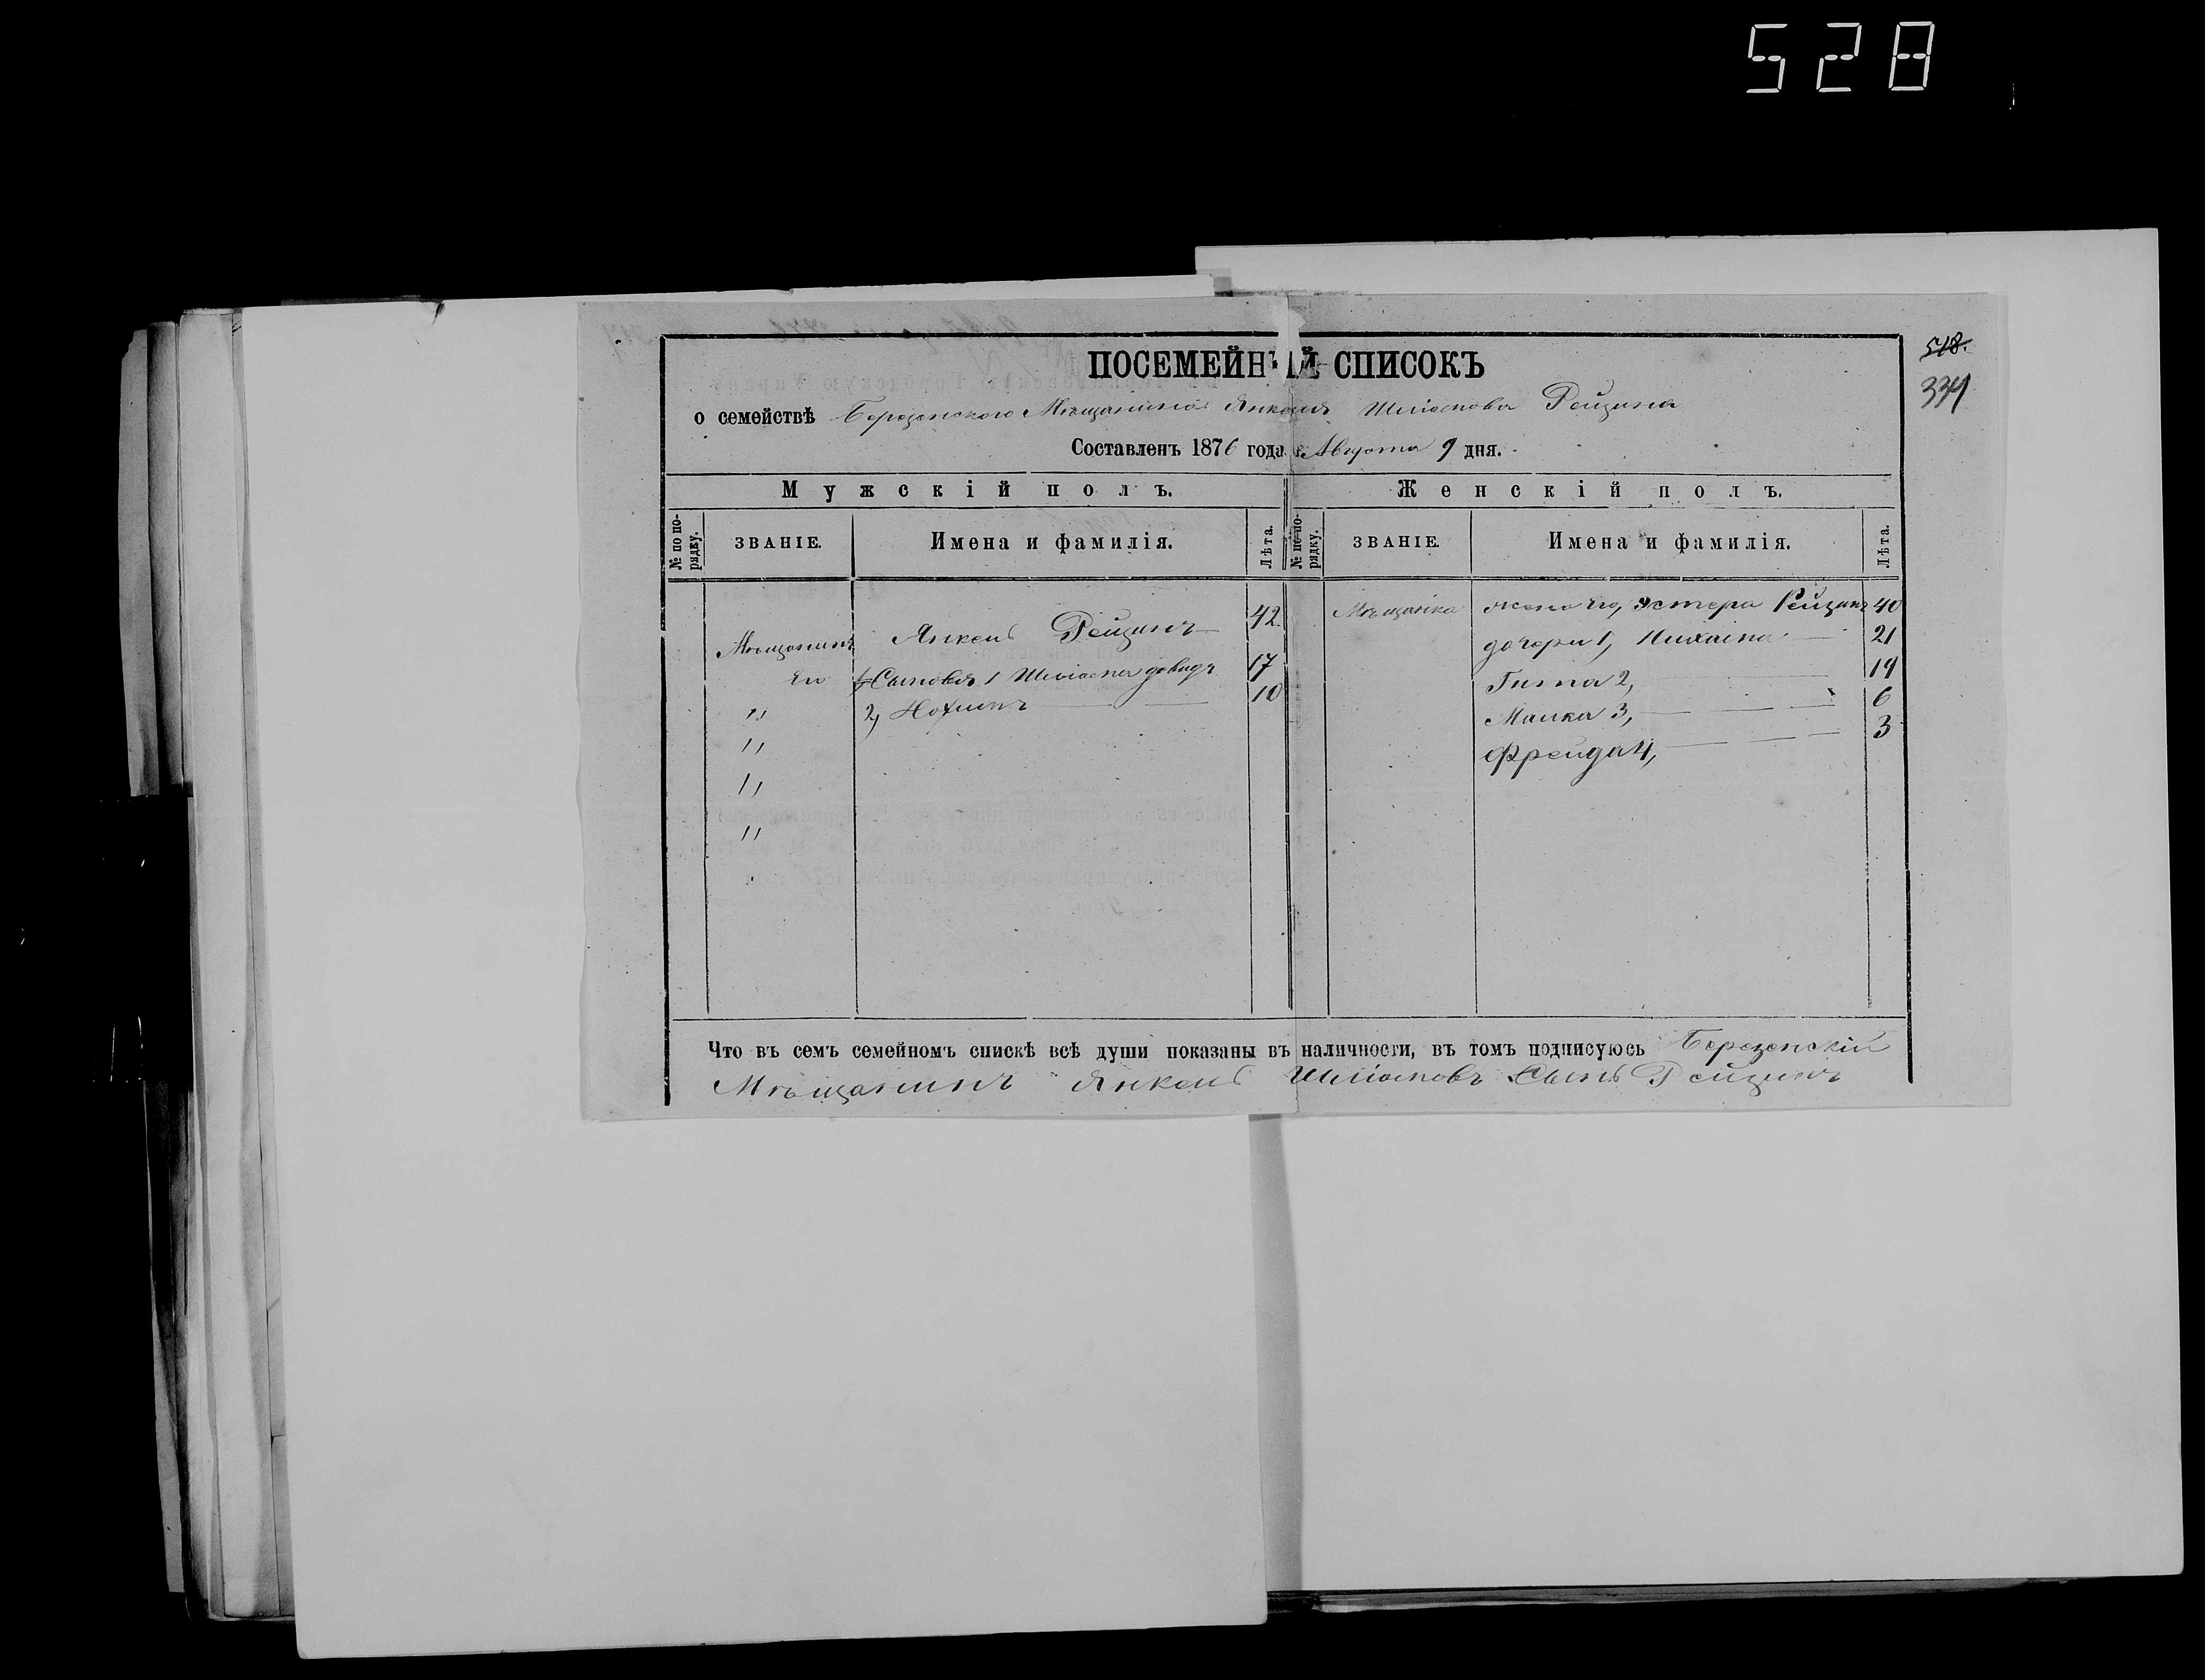 528
518.
334
ПОСЕМЕЙНЫЙ СПИСОКЪ
о семействѣ Березенского Мѣщанина Янкеля Шліомова Рейзина
Составленъ 1876 года Августа 9 дня.
Мужскій полъ. Женскій полъ.
№ по порядку. ЗВАНІЕ. Имена и фамилія. Лѣта. № по порядку. ЗВАНІЕ. Имена и фамилія. Лѣта.
Мѣщанинъ Янкель Рейзинъ 42 Мѣщанка жена его, Эстера Рейзинъ 40
Его Сыновья 1 Шліома довидъ 17 дочери 1, 21
" 2, Нохимъ 10 Гитта 2, 19
" Малка 3, 6
" Фрейда 4, 3
"
Что въ семъ семейномъ спискѣ всѣ души показаны въ наличности, въ томъ подписуюсь Березенскій
Мѣщанинъ Янкель Шліомовъ Сынъ Рейзинъ